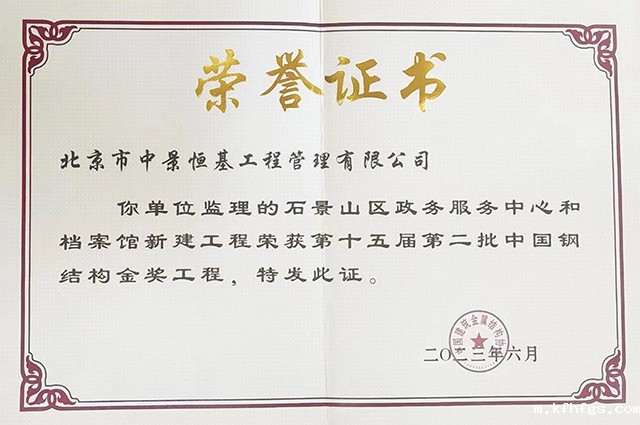 荣誉证书
北京市中景恒基工程管理有限公司
你单位监理的石景山区政务服务中心和
档案馆新建工程荣获第十五届第二批中国钢
结构金奖工程，特发此证。
中国建筑金属结构协会
二〇二三年六月
m.kfhfgs.com